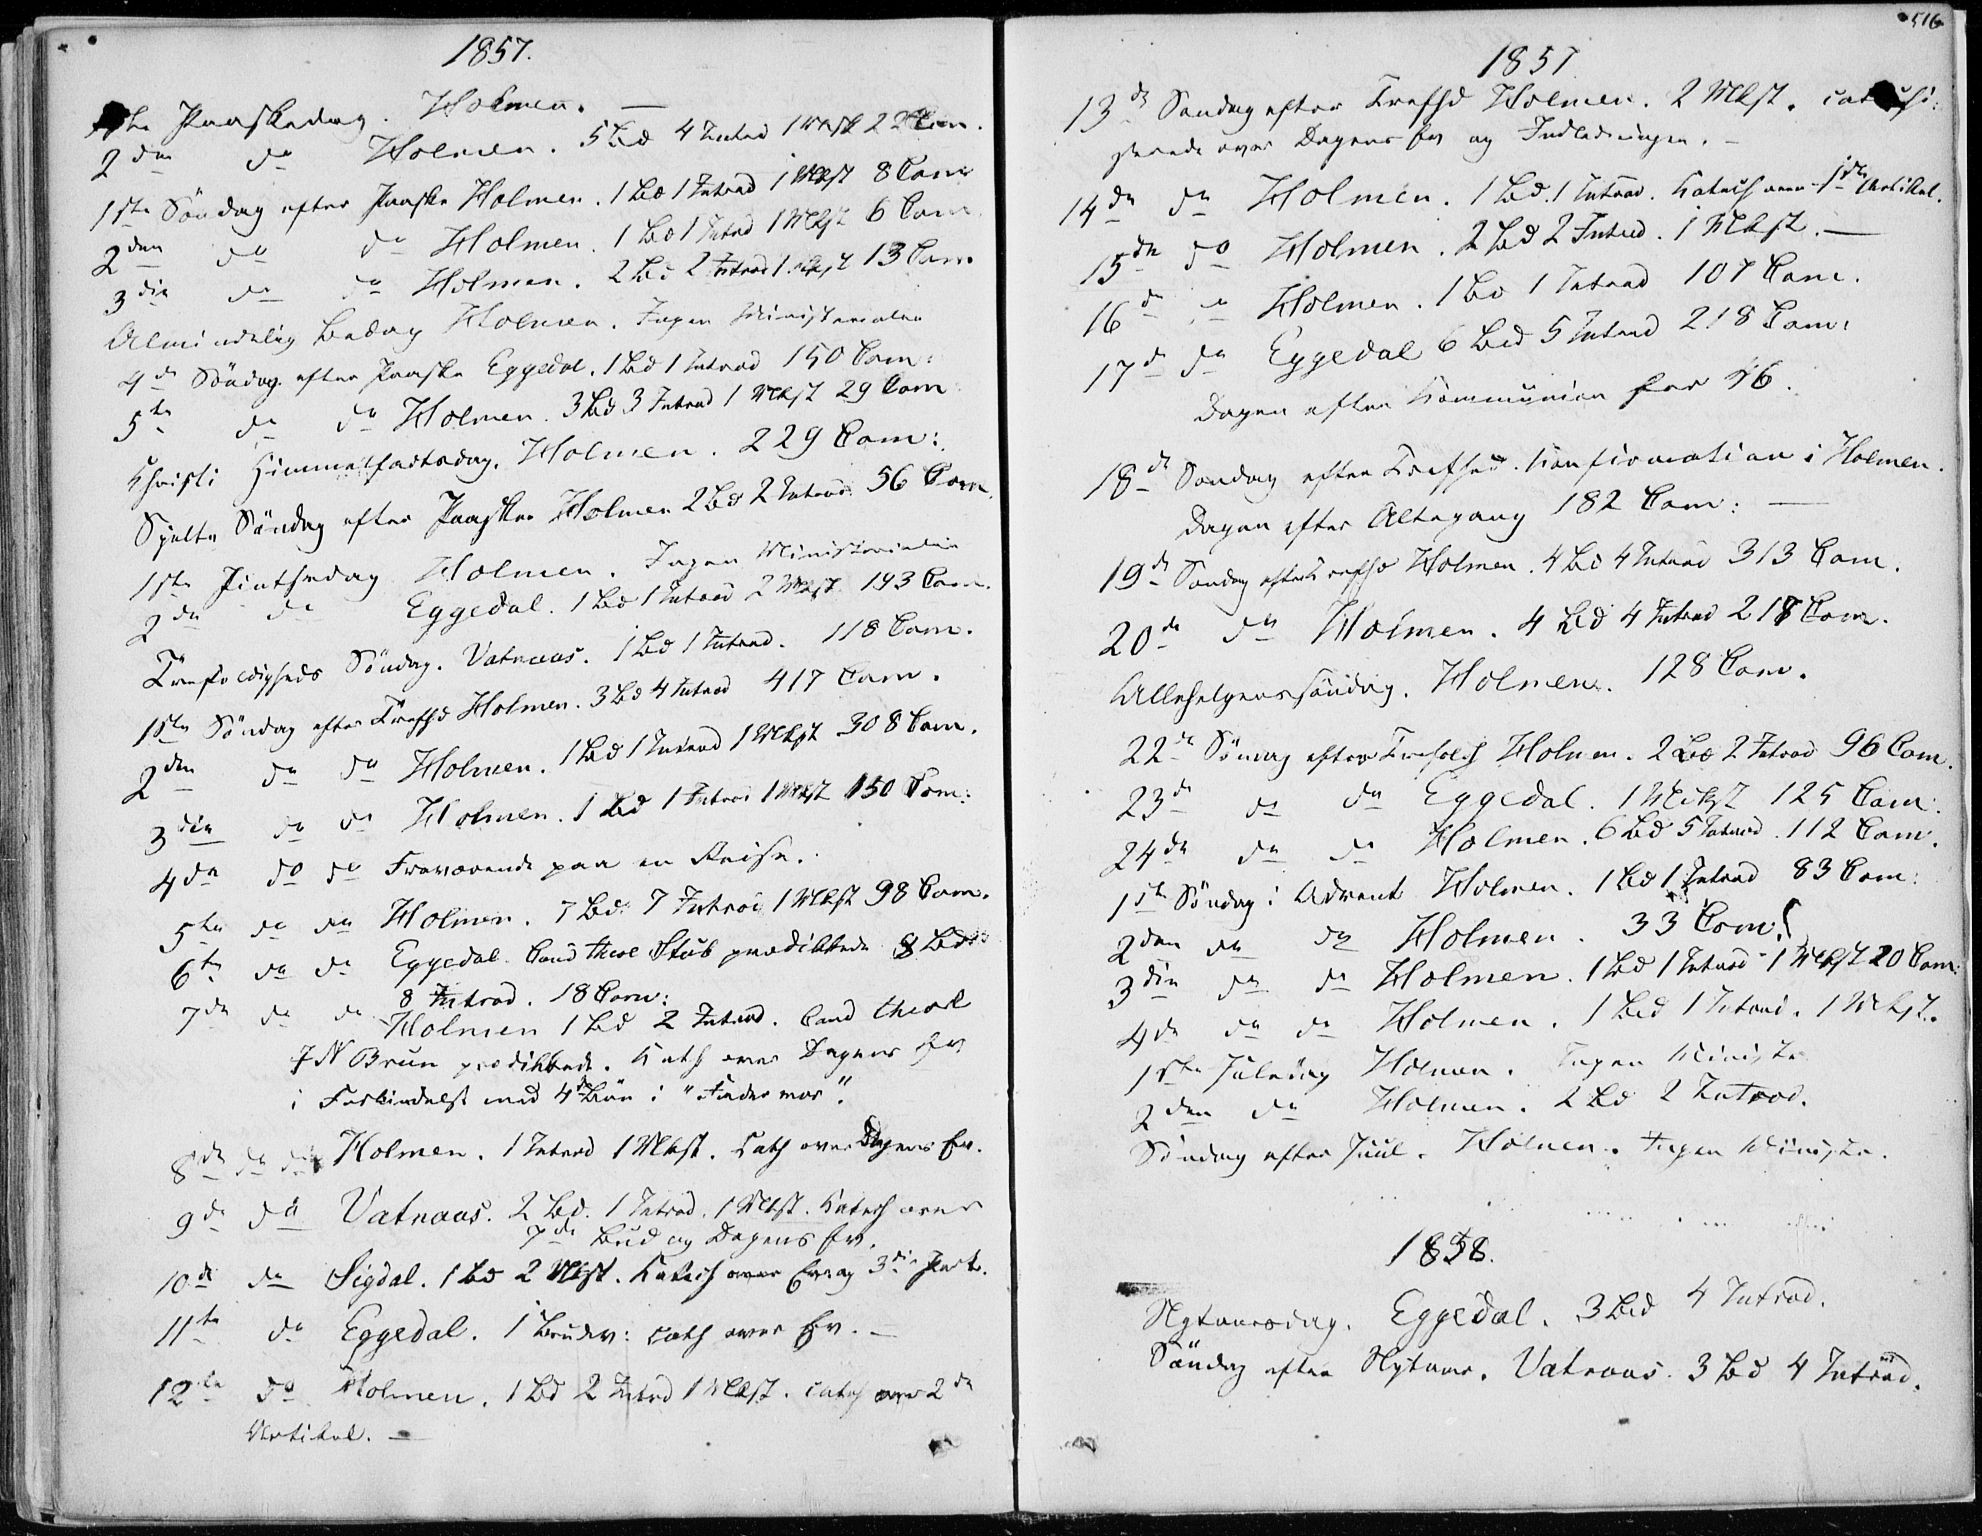 1857.
1ste Paaskedag. Holmen. —
2den do Holmen. 5 Bd 4 Introd 1 Mkst 22 Com.
1ste Söndag efter Paaske Holmen. 1 Bd 1 Introd 1 Mkst 8 Com
2den do do Holmen. 1 Bd 1 Introd 1 Mkst 6 Com
3die do do Holmen. 2 Bd 2 Introd 1 Mkst 13 Com.
Almindelig Bededag Holmen. Ingen Ministerialia
4de Söndag efter Paaske Eggedal. 1 Bd 1 Introd 150 Com:
5te do do Holmen. 3 Bd 3 Introd 1 Mkst 29 Com
Christi Himmelfartsdag. Holmen. 229 Com:
Sjette Söndag efter Paaske Holmen 2 Bd 2 Introd. 56 Com.
1ste Pintsedag Holmen. Ingen Ministerialia
2den do Eggedal. 1 Bd 1 Introd 2 Mkst 193 Com.
Trefoldigheds Söndag. Vatnaas. 1 Bd 1 Introd. 118 Com.
1ste Söndag efter Trefhd Holmen. 3 Bd 4 Introd 417 Com.
2den do do Holmen. 1 Bd 1 Introd 1 Mkst 308 Com.
3die do do Holmen. 1 Bd 1 Introd 1 Mkst 150 Com:
4de do do Fraværende paa en Reise.
5te do do Holmen. 7 Bd. 7 Introd 1 Mkst 98 Com.
6te do do Eggedal. Cand theol Stub prædikede 8 Bd
8 Introd. 18 Com:
7de do do Holmen 1 Bd 2 Introd. Cand theol
J N Brun prædikede. Kath over Dagens Ev
i Forbindelse med 4de Bön i "Fader vor".
8de do do Holmen. 1 Introd 1 Mkst. Cath over Dagens Ev.
9de do Vatnaas. 2 Bd. 1 Introd. 1 Mkst. Katech over
7de Bud og Dagens Ev.
10de do Sigdal. 1 Bd 2 Mkst. Katech over Ev og 3die Part.
11te do Eggedal. 1 Brudev: Cath over Ev. —
12te do Holmen. 1 Bd 2 Introd 1 Mkst. Catech over 2de
Artikel. —
516
1857
13de Söndag efter Trefhd Holmen. 2 Mkst. catechi:
serede over Dagens Ev og Indledningen. —
14de do Holmen. 1 Bd. 1 Introd. Katech over 1ste Artikel.
15de do Holmen. 2 Bd 2 Introd. 1 Mkst. —
16de do Holmen. 1 Bd 1 Introd 107 Com.
17de do Eggedal 6 Bd 5 Introd 218 Com:
Dagen efter Kommunion for 46.
18de Söndag efter Trefhed. Konfirmation i Holmen.
Dagen efter Altergang 182 Com: —
19de Söndag efter Trefhd Holmen. 4 Bd 4 Introd 313 Com.
20de do Holmen. 4 Bd 4 Introd 218 Com.
Allehelgenssöndag. Holmen. 128 Com.
22de Söndag efter Trefoldh Holmen. 2 Bd 2 Introd 96 Com.
23de do do Eggedal. 1 Mkst 125 Com:
24de do do Holmen. 6 Bd 5 Introd. 112 Com.
1ste Söndag i Advent Holmen. 1 Bd 1 Introd 83 Com:
2den do do Holmen. 33 Com.
3die do do Holmen. 1 Bd 1 Introd - 1 Mkst 20 Com:
4de do do Holmen. 1 Bd 1 Introd. 1 Mkst.
1ste Juledag Holmen. Ingen Ministe
2den do Holmen. 2 Bd 2 Introd.
Söndag efter Juul. Holmen. Ingen Ministe.
1858.
Nytaarsdag. Eggedal. 3 Bd 4 Introd.
Söndag efter Nytaar. Vatnaas. 3 Bd 4 Introd.